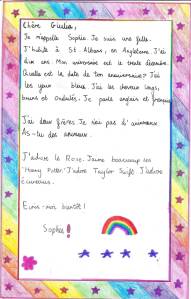 Chère Giulia,
Je m'appelle Sophie. Je suis une fille.
J'habite à St. Albans, en Angleterre. J'ai
dix ans. Mon anniversaire est le trente décembre.
Quelle est la date de ton anniversaire? J'ai
les yeux bleus. J'ai les cheveux longs,
bruns et ondulés. Je parle anglais et français
J'ai deux frères. Je n'ai pas d'animaux.
As-tu des animaux.
J'adore le Rose. J'aime beaucoup les
"Harry Potter". J'adore Taylor Swift. J'adore
Ecris-moi bientôt!
Sophie!